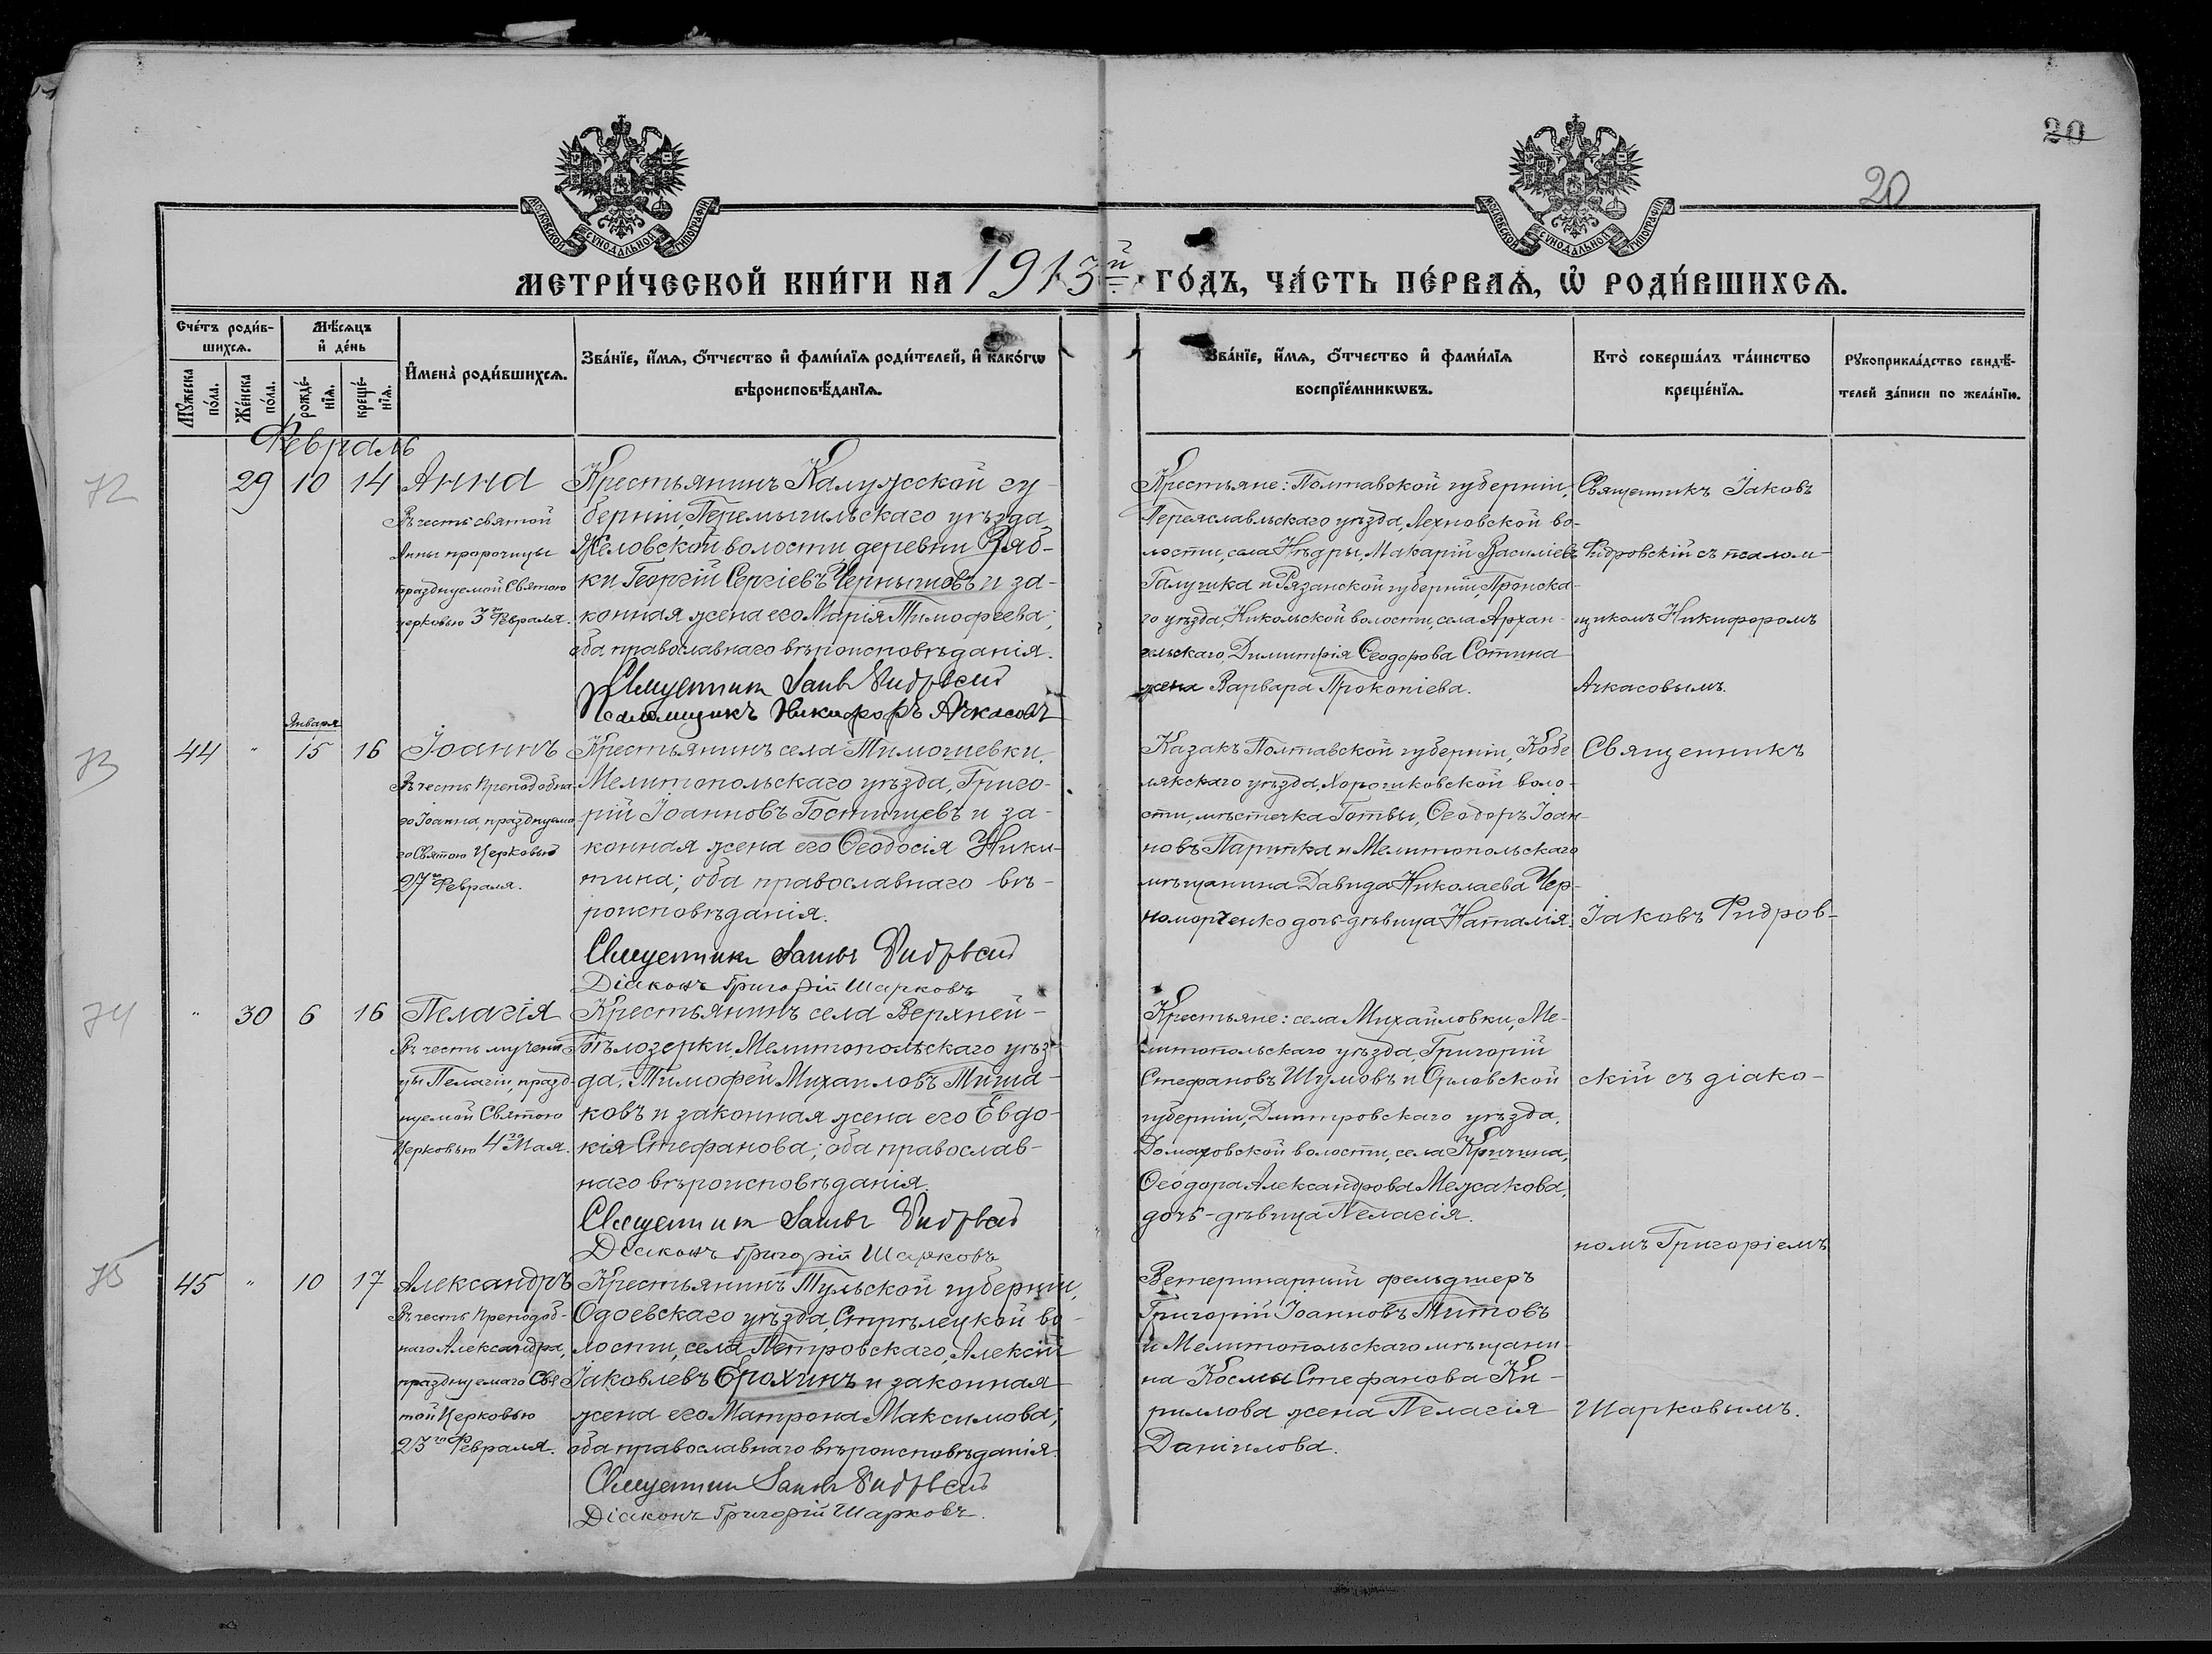 20
20
МОСКОВСКОЙ СѴНОДАЛЬНОЙ ТИПОГРАФІИ
МОСКОВСКОЙ СѴНОДАЛЬНОЙ ТИПОГРАФІИ
МЕТРИ́ЧЕСКОЙ КНИ́ГИ НА 1913й ГО́ДЪ, ЧА́СТЬ ПЕ́РВАѦ, Ѡ҆ РОДИ́ВШИХСѦ.
Сче́тъ роди́в-
шихсѧ.
Мꙋ́жеска по́ла.
Же́нска по́ла.
Мѣ́сѧцъ
и҆ де́нь
рожде́-
нїѧ.
креще́-
нїѧ.
И҆мена̀ роди́вшихсѧ.
Зва́нїе, и҆́мѧ, ѻ҆́тчество и҆ фами́лїѧ роди́телей, и҆ како́гѡ
вѣроисповѣ́данїѧ.
Зва́нїе, и҆́мѧ, ѻ҆́тчество и҆ фами́лїѧ
воспрїе́мникѡвъ.
Кто̀ соверша́лъ та́инство
креще́нїѧ.
Рꙋкоприкла́дство свидѣ́-
телей за́писи по жела́нїю.
Февраль
72
29 10 14 Анна
Въ честь святой
Анны пророчицы
празднуемой Святою
церковью 3го Февраля.
Крестьянинъ Калужской гу-
берніи, Перемышльскаго уѣзда,
Желовской волости деревни Ряб-
ки, Георгій Сергіевъ Чернышовъ и за-
конная жена его Марія Тимофеева;
оба православнаго вѣроисповѣданія.
Священникъ Іаковъ Фидровскій
Псаломщикъ Никифоръ Ачкасовъ
Крестьяне: Полтавской губерніи,
Переяславльскаго уѣзда, Лехновской во-
лости, села Нѣдры, Макарій Василіевъ
Галушка и Рязанской губерніи, Пронска-
го уѣзда, Никольской волости, села Архан-
гельскаго, Димитрія Ѳеодорова Сотина
жена Варвара Прокопіева.
Священникъ Іаковъ
Фидровскій съ псалом-
щикомъ Никифоромъ
Ачкасовымъ.
73
Января
44 " 15 16 Іоаннъ
Въ честь Преподобна-
го Іоанна, празднуема-
го Святою Церковью
27го Февраля.
Крестьянинъ села Тимошевки,
Мелитопольскаго уѣзда, Григо-
рій Іоанновъ Гостищевъ и за-
конная жена его Ѳеодосія Ники-
тина; оба православнаго вѣ-
роисповѣданія.
Священникъ Іаковъ Фидровскій
Діаконъ Григорій Шарковъ
Казакъ Полтавской губерніи, Кобе-
лякскаго уѣзда, Хорошковской воло-
сти, мѣстечка Готвы, Ѳеодоръ Іоан-
новъ Паритка и Мелитопольскаго
мѣщанина Давида Николаева Чер-
номорченко дочь-дѣвица Наталія.
Священникъ
Іаковъ Фидров-
74
" 30 6 16 Пелагія
Въ честь мучени-
цы Пелагіи, празд-
нуемой Святою
Церковью 4го Мая.
Крестьянинъ села Верхней-
Бѣлозерки, Мелитопольскаго уѣз-
да, Тимофей Михаиловъ Тиша-
ковъ и законная жена его Евдо-
кія Стефанова; оба православ-
наго вѣроисповѣданія.
Священникъ Іаковъ Фидровскій
Діаконъ Григорій Шарковъ
Крестьяне: села Михайловки, Ме-
литопольскаго уѣзда, Григорій
Стефановъ Шумовъ и Орловской
губерніи, Дмитровскаго уѣзда,
Домаховской волости, села Кричина,
Ѳеодора Александрова Межакова,
дочь-дѣвица Пелагія.
скій съ діако-
номъ Григоріемъ
75
45 " 10 17 Александръ
Въ честь Преподоб-
наго Александра,
празднуемаго Свя-
той Церковью
23го Февраля.
Крестьянинъ Тульской губерніи,
Одоевскаго уѣзда, Стрѣлецкой во-
лости, села Петровскаго, Алексій
Іаковлевъ Ерохинъ и законная
жена его Матрона Максимова;
оба православнаго вѣроисповѣданія.
Священникъ Іаковъ Фидровскій
Діаконъ Григорій Шарковъ.
Ветеринарный фельдшеръ
Григорій Іоанновъ Титовъ
и Мелитопольскаго мѣщани-
на Космы Стефанова Ки-
риллова жена Пелагія
Даніилова.
Шарковымъ.